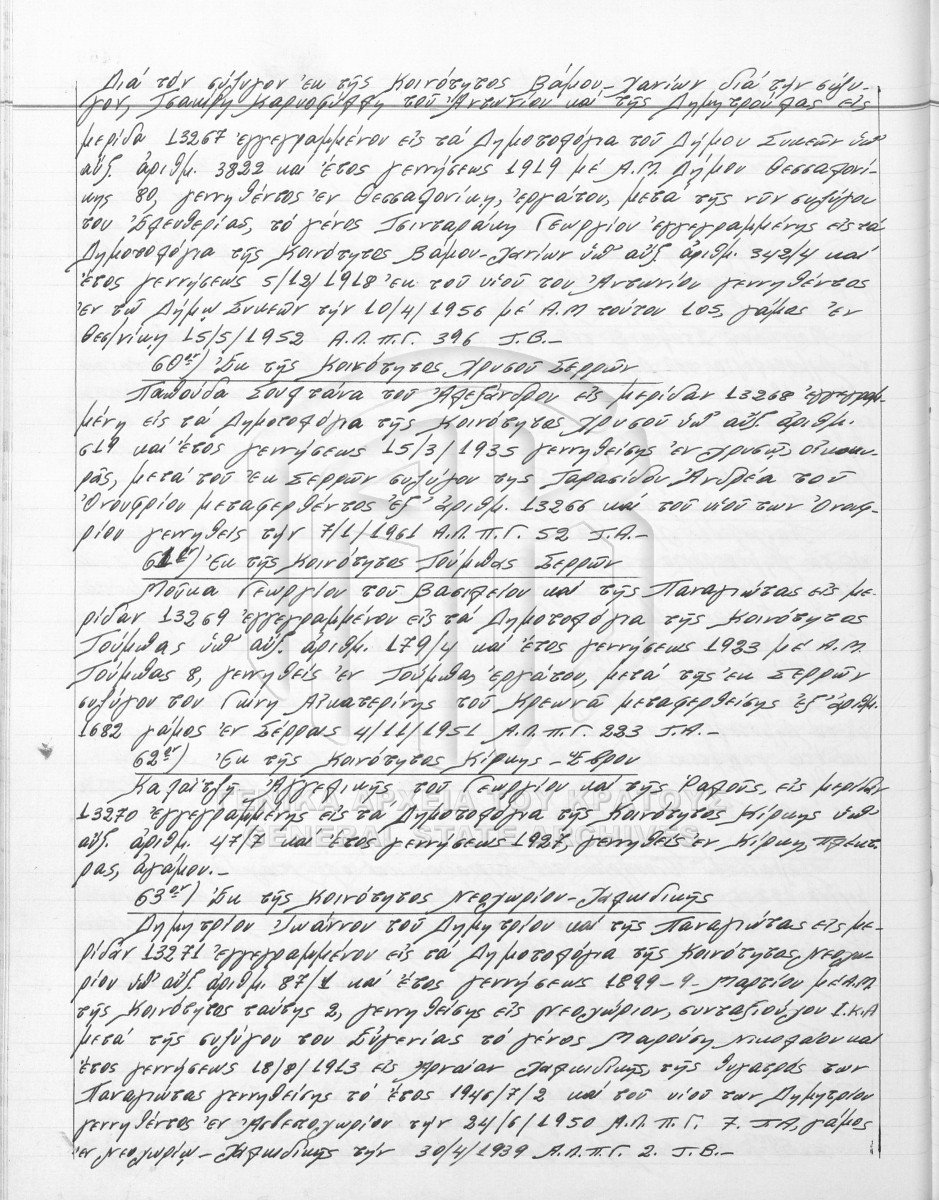 Διά τόν σύζυγον ἐκ τῆς Κοινότητος Βάμου - Χανίων διά τήν σύζυ-
γον, Τσακίρη Καρυοφύλλη τοῦ Ἀντωνίου καί τῆς Δημητρούλας εἰς
μερίδα 13267 ἐγγεγραμμένου εἰς τά Δημοτολόγια τοῦ Δήμου Συκεῶν ὑπ'
αὔξ. ἀριθμ. 3822 καί ἔτος γεννήσεως 1919 μέ Α.Μ. Δήμου Θεσσαλονί-
κης 80, γεννηθέντος ἐν Θεσσαλονίκῃ, ἐργάτου, μετά τῆς νῦν συζύγου
του Ἐλευθερίας, τό γένος Τσινταράκη Γεωργίου ἐγγεγραμμένης εἰς τά
Δημοτολόγια τῆς Κοινότητος Βάμου - Χανίων ὑπ' αὔξ. ἀριθμ. 342/4 καί
ἔτος γεννήσεως 5/12/1918 ἐκ τοῦ υἱοῦ του Ἀντωνίου γεννηθέντος
ἐν τῷ Δήμῳ Συκεῶν τήν 10/4/1956 μέ Α.Μ τούτου 105, γάμος ἐν
Θεσ/νίκῃ 15/5/1952 Α.Λ.Π.Γ. 396 Τ.Β.-
60ον) Ἐκ τῆς Κοινότητος Χρυσοῦ Σερρῶν
Παπούδα Σουλτάνα τοῦ Ἀλεξάνδρου εἰς μερίδαν 13268 ἐγγεγραμ-
μένη εἰς τά Δημοτολόγια τῆς Κοινότητος Χρυσοῦ ὑπ' αὔξ. ἀριθμ.
619 καί ἔτος γεννήσεως 15/3/1935 γεννηθείσης ἐν Χρυσῷ, οἰκοκυ-
ρᾶς, μετά τοῦ ἐκ Σερρῶν συζύγου της Ταρασίδου Ἀνδρέα τοῦ
Ὀνουφρίου μεταφερθέντος ἐξ' ἀριθμ. 13266 καί τοῦ υἱοῦ των Ὀνουφ-
ρίου γεννηθείς τήν 7/1/1961 Α.Λ.Π.Γ. 52 Τ.Α.-
61ον) Ἐκ τῆς Κοινότητος Τούμπας Σερρῶν
Μούκα Γεωργίου τοῦ Βασιλείου καί τῆς Παναγιώτας εἰς με-
ρίδαν 13269 ἐγγεγραμμένου εἰς τά Δημοτολόγια τῆς Κοινότητος
Τούμπας ὑπ' αὔξ. ἀριθμ. 179/4 καί ἔτος γεννήσεως 1923 μέ Α.Μ.
Τούμπας 8, γεννηθείς ἐν Τούμπᾳ, ἐργάτου, μετά τῆς ἐκ Σερρῶν
συζύγου του Γώγη Αἰκατερίνης τοῦ Κρεωνᾶ μεταφερθείσης ἐξ' ἀριθμ.
1682 γάμος ἐν Σέρραις 4/11/1951 Α.Λ.Π.Γ. 223 Τ.Α.-
62ον) Ἐκ τῆς Κοινότητος Κίρκης - Ἔβρου
Καλαϊτζῆ Ἀγγελικῆς τοῦ Γεωργίου καί τῆς Ραλοῦς, εἰς μερίδα
13270 ἐγγεγραμμένης εἰς τά Δημοτολόγια τῆς Κοινότητος Κίρκης ὑπ'
αὔξ. ἀριθμ. 47/7 καί ἔτος γεννήσεως 1927, γεννηθείς ἐν Κίρκῃ, πλέκτ
ρας, ἀγάμου.-
63ον) Ἐκ τῆς Κοινότητος Νεοχωρίου - Χαλκιδικῆς
Δημητρίου Ἰωάννου τοῦ Δημητρίου καί τῆς Παναγιώτας εἰς με-
ρίδαν 13271 ἐγγεγραμμένου εἰς τά Δημοτολόγια τῆς Κοινότητος Νεοχω-
ρίου ὑπ' αὔξ. ἀριθμ. 87/1 καί ἔτος γεννήσεως 1899 - 9 - Μαρτίου μέ Α.Μ
τῆς Κοινότητος ταύτης 2, γεννηθείσης εἰς Νεοχώριον, συνταξιούχου Ι.Κ.Α
μετά τῆς συζύγου του Εὐγενίας τό γένος Μαρούση Νικολάου καί
ἔτος γεννήσεως 18/8/1913 εἰς Ἀρναίαν Χαλκιδικῆς, τῆς θυγατρός των
Παναγιώτας γεννηθείσης τό ἔτος 1946/7/2 καί τοῦ υἱοῦ των Δημητρίου
γεννηθέντος ἐν Ἀσβεστοχωρίου τήν 24/6/1950 Α.Λ.Π.Γ. 7. Τ.Α. γάμος
ἐν Νεοχωρίῳ - Χαλκιδικῆς τήν 30/4/1939 Α.Λ.Π.Γ. 2. Τ.Β.-
ΓΕΝΙΚΑ ΑΡΧΕΙΑ ΤΟΥ ΚΡΑΤΟΥΣ
GENERAL STATE ARCHIVES